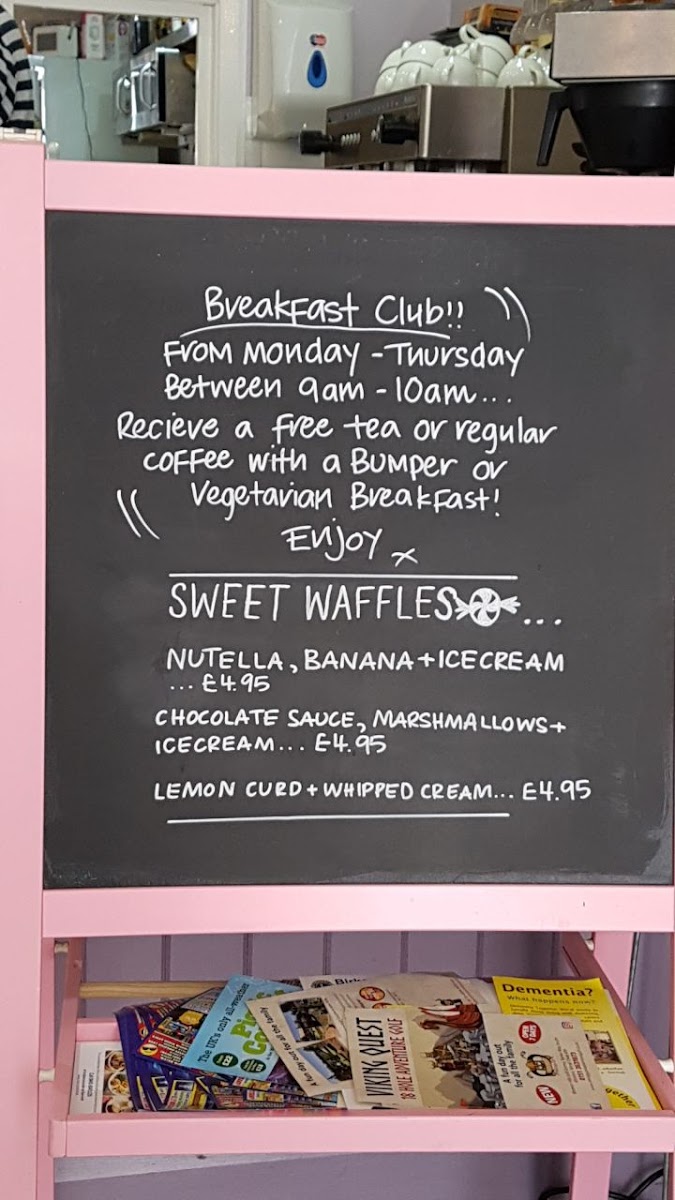 Breakfast Club!!
From Monday - Thursday
Between 9am - 10am...
Recieve a free tea or regular
coffee with a Bumper or
Vegetarian Breakfast!
Enjoy x
SWEET WAFFLES...
NUTELLA, BANANA + ICECREAM
... £4.95
CHOCOLATE SAUCE, MARSHMALLOWS +
ICECREAM... £4.95
LEMON CURD + WHIPPED CREAM... £4.95
Dementia?
What happens now?
The UK's only all-weather
A fun day out for all the family
VIKING QUEST
18 HOLE ADVENTURE GOLF
A fun day out
for all the family
NEW